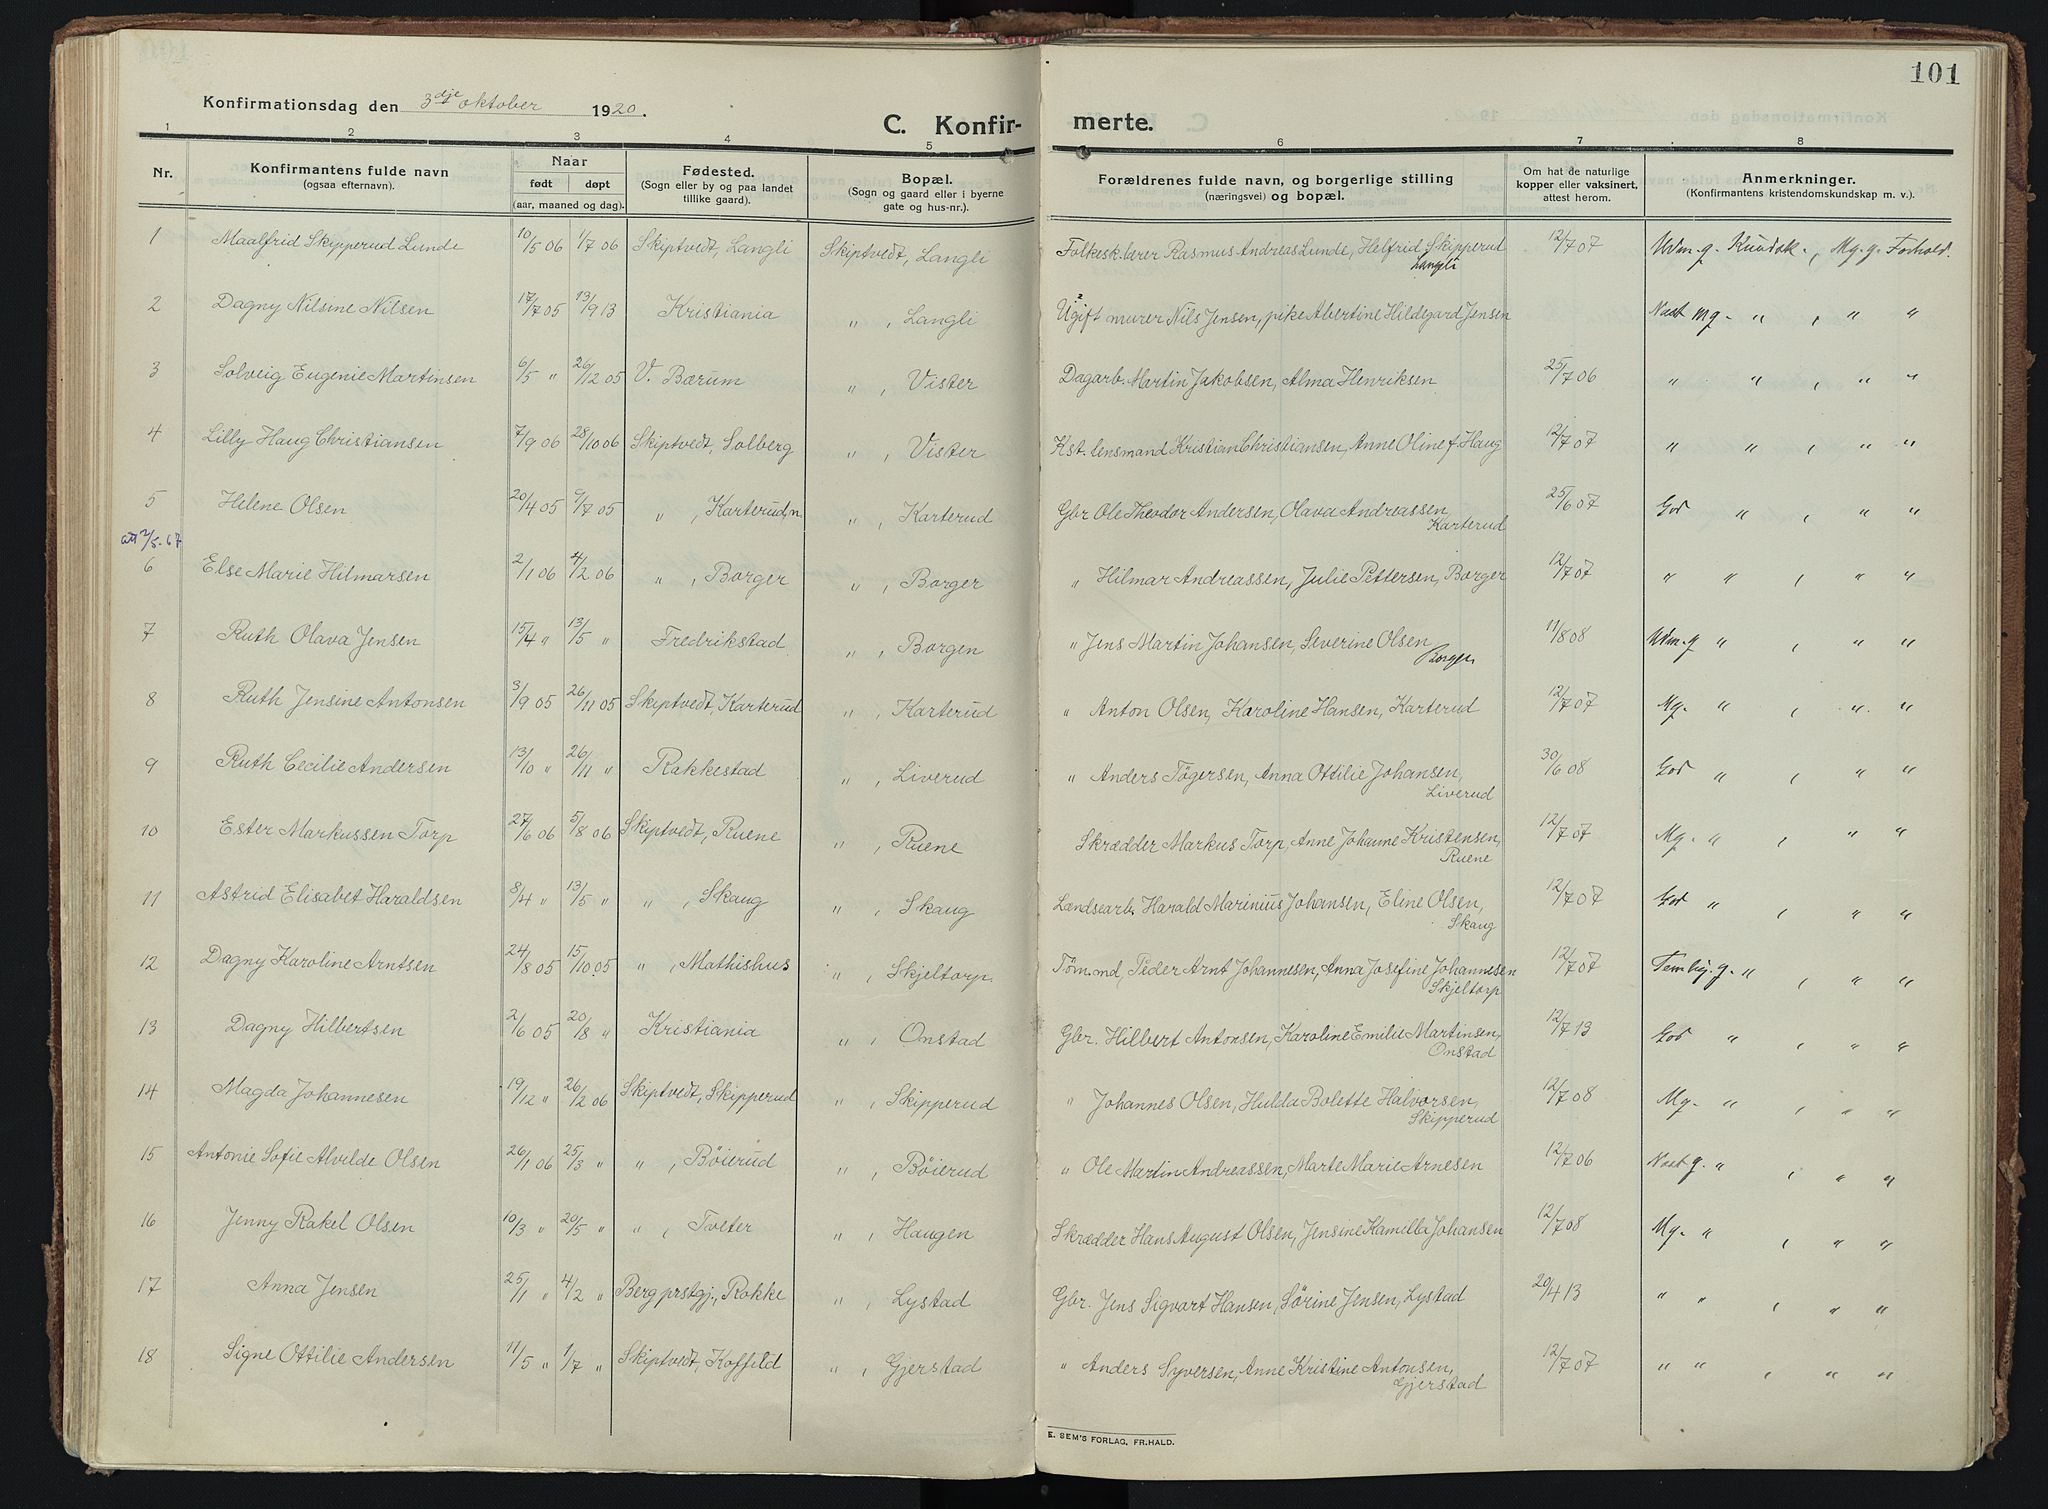 101
Konfirmationsdag den 3dje oktober 1920.
C. Konfir- merte.
1 2 3 4 5 6 7 8
Nr.
Konfirmantens fulde navn
(ogsaa efternavn).
Naar
født døpt
(aar, maaned og dag).
Fødested.
(Sogn eller by og paa landet
tillike gaard).
Bopæl.
(Sogn og gaard eller i byerne
gate og hus-nr.).
Forældrenes fulde navn, og borgerlige stilling
(næringsvei) og bopæl.
Om hat de naturlige
kopper eller vaksinert,
attest herom.
Anmerkninger.
(Konfirmantens kristendomskundskap m. v.).
1 Maalfrid Skipperud Lunde 10/5 06 1/7 06 Skiptvedt, Langli Skiptvedt, Langli Folkesk.lærer Rasmus Andreas Lunde, Helfrid Skipperud 12/7 07 Udm. g. Kundsk., Mg. g. Forhold.
Langli
2 Dagny Nilsine Nilsen 17/7 05 13/9 13 Kristiania " , Langli Ugift murer Nils Jensen, pike Abertine Hildegard Jensen Nast mg. " , " "
3 Solveig Eugenie Martinsen 6/5 " 26/12 05 V. Bærum " , Vister Dagarb. Martin Jakobsen, Alma Henriksen 25/7 06 " " , " "
4 Lilly Haug Christiansen 7/9 06 28/10 06 Skiptvedt, Solberg " , Vister Kst. lensmand Kristian Christiansen, Anne Oline f. Haug 12/7 07 " " , " "
5 Helene Olsen 20/4 05 9/7 05 " , Karterud, n. " , Karterud Gbr Ole Theodor Andersen, Olava Andreassen, 25/6 07 God " , " "
Karterud
att 2/5-67
6 Else Marie Hilmarsen 2/1 06 4/2 06 " , Borger " , Borger " Hilmar Andreassen, Julie Pettersen, Borger 12/7 07 " " , " "
7 Ruth Olava Jensen 15/4 " 13/5 " Fredrikstad " , Borgen " Jens Martin Johansen, Severine Olsen 11/8 08 Udm. g " , " "
Borgen
8 Ruth Jensine Antonsen 3/9 05 26/11 05 Skiptvedt, Karterud " , Karterud " Anton Olsen, Karoline Hansen, Karterud 12/7 07 Mg. " , " "
9 Ruth Cecilie Andersen 13/10 " 26/11 " Rakkestad " , Liverud " Anders Tøgersen, Anna Ottilie Johansen, 30/6 08 God " , " "
Liverud
10 Ester Markussen Torp 27/6 06 5/8 06 Skiptvedt, Ruene " , Ruene Skrædder Markus Torp, Anne Johanne Kristensen, 12/7 07 Mg. " , " "
Ruene
11 Astrid Elisabet Haraldsen 8/4 " 13/5 " " , Skaug " , Skaug Lændsearb. Harald Marinius Johansen, Eline Olsen, 12/7 07 God " , " "
Skaug
12 Dagny Karoline Arntsen 24/8 05 15/10.05 " , Mathishus " , Skjeltorp Tøm.md, Peder Arnt Johannesen, Anna Josefine Johannesen 12/7 07 Temlig. g. " , " "
Skjeltorp
13 Dagny Hilbertsen 2/6 05 20/8 " Kristiania " , Onstad Gbr. Hilbert Antonsen, Karoline Emilie Martinsen, 12/7 13 God " , " "
Onstad
14 Magda Johannesen 19/12 " 26/2 06 Skiptvedt, Skipperud " , Skipperud " Johannes Olsen, Hulda Bolette Halvorsen, 12/7 08 Mg. " , " "
Skipperud
15 Antonie Sofie Alvilde Olsen 26/1 06 25/3 " " , Bøierud " , Bøierud " Ole Martin Andreassen, Marte Marie Arnesen 12/7 06 Nast g. " , " "
16 Jenny Rakel Olsen 10/3 " 20/5 " " , Tveter " , Haugen Skrædder Hans August Olsen, Jensine Kamilla Johansen 12/7 08 Mg. " , " "
17 Anna Jensen 25/1 " 4/2 " Berg prstgj., Rokke " , Lystad Gbr. Jens Sigvart Hansen, Sørine Jensen, Lystad 20/4 13 " " , " "
18 Signe Ottilie Andersen 11/5 " 1/7 " Skiptvedt, Koffeld " , Gjerstad " Anders Syversen, Anne Kristine Antonsen, 12/7 07 " " , " "
Gjerstad
E. SEM'S FORLAG, FR.HALD.